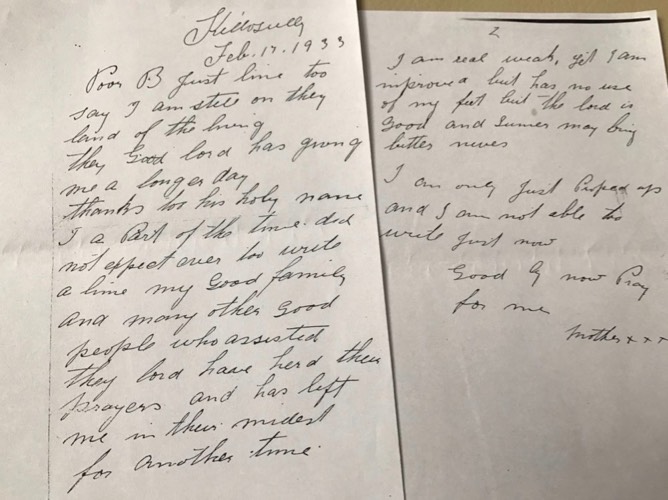 Killosully
Feb. 17. 1933
Poor B Just line too
say I am stee on they
land of the living
they Good lord has giving
me a longer day
thanks too his holy name
I a Part of the time did
not expect ever too write
a line my Good family
and many other Good
people who assisted
they lord have herd their
prayers and has left
me in their midest
for another time.
2
I am real weak, yet I am
improved but has no use
of my feet but the lord is
Good and Sumer may bring
better news
I am only Just Proped up
and I am not able too
write Just now
Good by now Pray
for me
Mother x x x